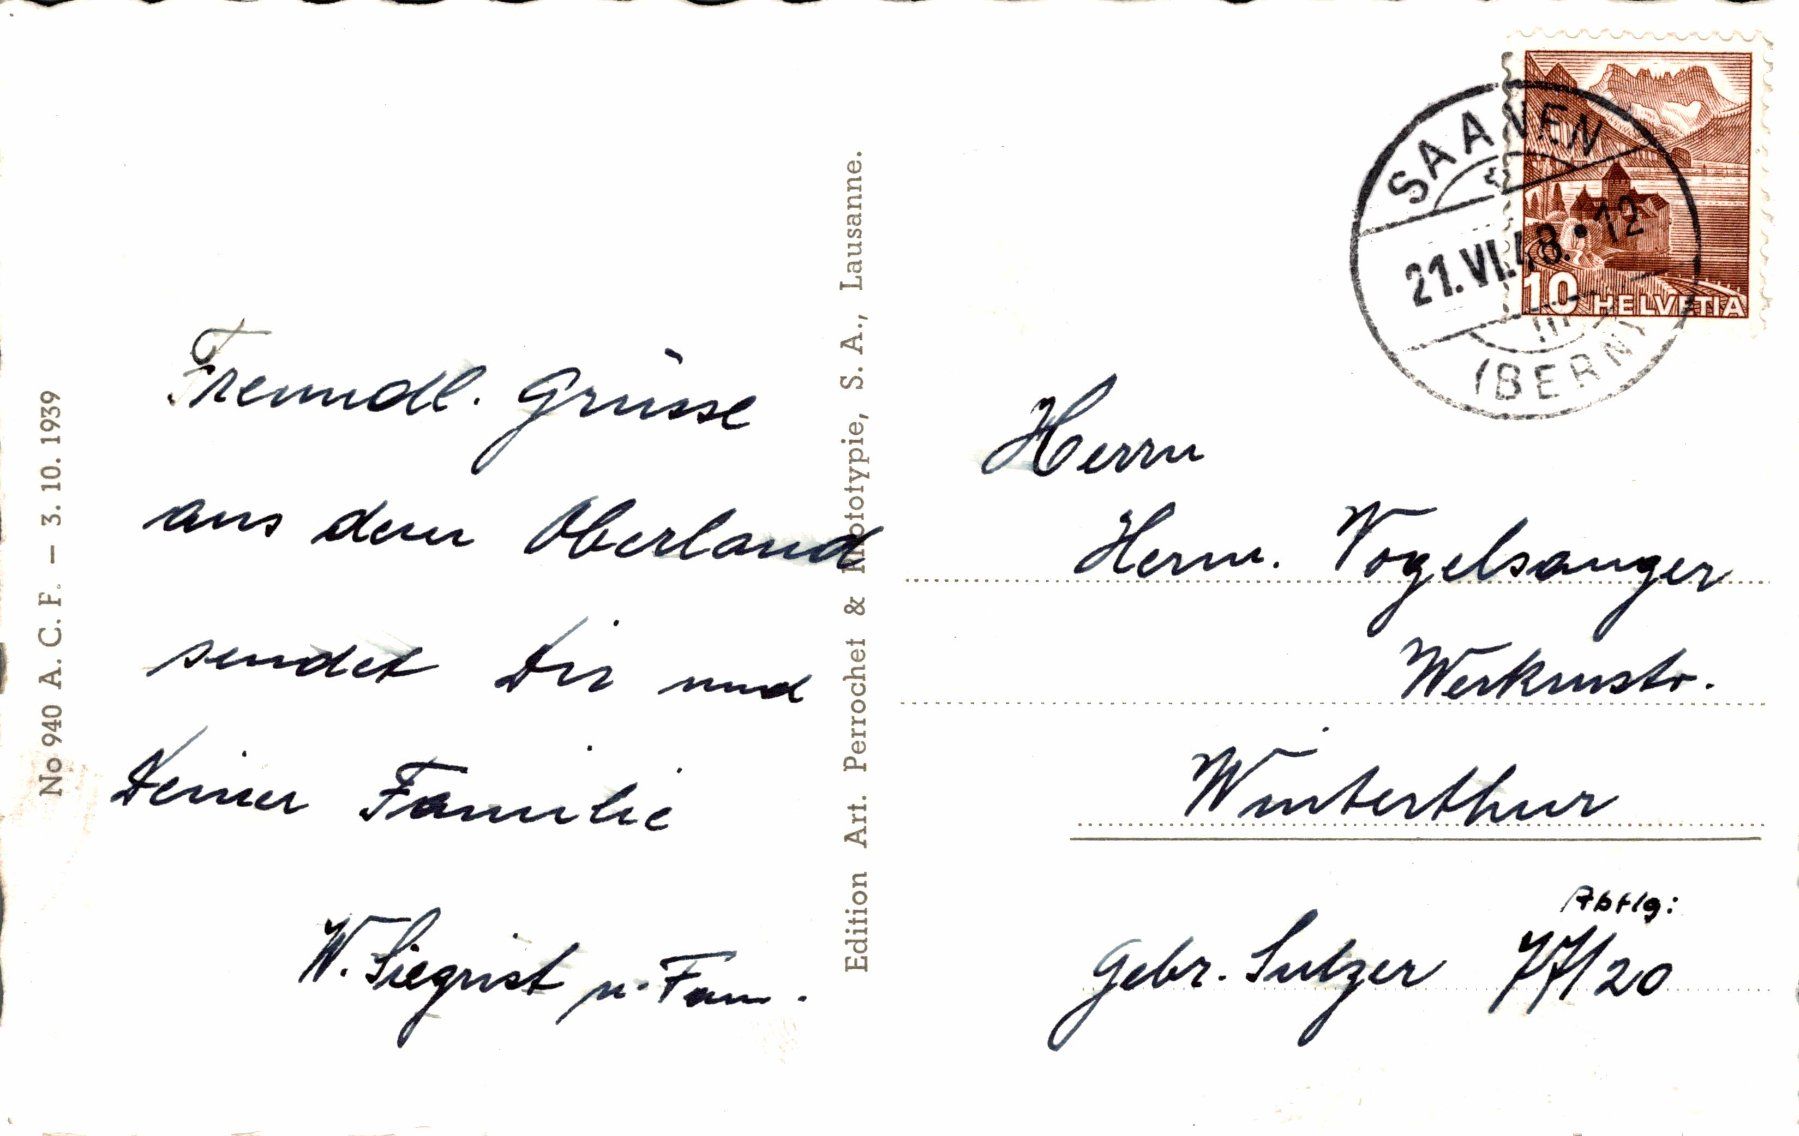 No 940 A. C. F. — 3. 10. 1939
Freundl. Grüsse
aus dem Oberland
sendet Dir und
Deiner Familie
W. Siegrist u. Fam.
Edition Art. Perrochet & Phototypie, S. A., Lausanne.
SAANEN
21.VI.48.•12
(BERN)
10 HELVETIA
Herrn
Herm. Vogelsanger
Werkmstr.
Winterthur
Abtlg:
Gebr. Sulzer 77/20